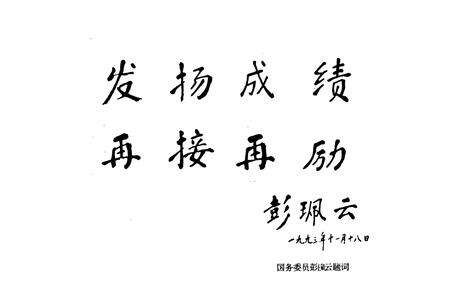 发扬成绩
再接再励
彭珮云
一九九三年十一月十八日
国务委员彭珮云题词